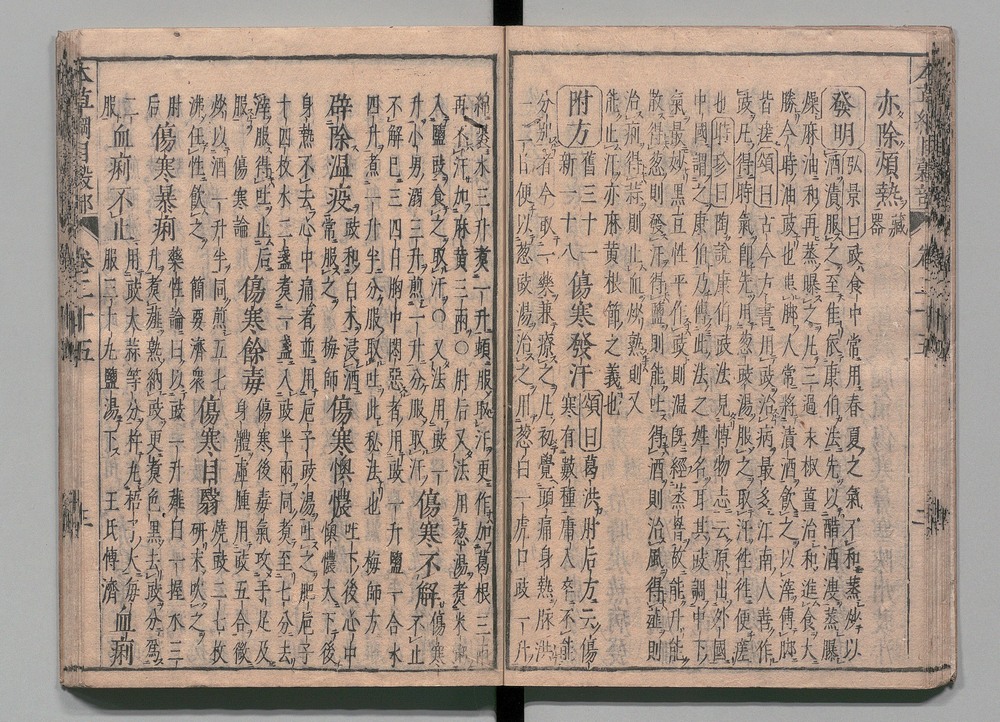 亦除煩熱藏器
發明弘景曰豉食中常用春夏之氣不和蒸炒以
酒漬服之至佳依康伯法先以醋酒溲蒸曝
燥麻油和再蒸曝之凡三過末椒薑治和進食大
勝今時油豉也患脚人常將漬酒飲之以滓傅脚
皆瘥頌曰古今方書用豉治病最多江南人善作
豉凡得時氣卽先用葱豉湯服之取汗往往便瘥
也時珍曰陶說康伯豉法見博物志云原出外國
中國謂之康伯乃傳此法之姓名耳其豉調中下
氣最妙黑豆性平作豉則温旣經蒸罯故能升能
散得葱則發汗得鹽則能吐得酒則治風得薤則
治痢得蒜則止血炒熟則又
能止汗亦麻黄根節之義也
附方舊三十一新一十八傷寒發汗頌曰葛洪肘后方云傷寒有數種庸人卒不能
分別者今取一藥兼療之凡初覺頭痛身熱脉洪
一二日便以葱豉湯治之用葱白一虎口豉一升
綿裹水三升煮一升頓服取汗更作加葛根三兩
再不汗加麻黄三兩○肘后又法用葱湯煮米粥
入鹽豉食之取汗○又法用豉一升小男溺三升煎一升分服取汗傷寒不解傷寒
不解已三四日胸中悶惡者用豉一升鹽一合水
四升煮一升半分服取吐此秘法也梅師方
辟除温疫豉和白术浸酒常服之梅師傷寒懊憹吐下後心中懊憹大下後
身熱不去心中痛者並用巵子豉湯吐之肥巵子
十四枚水二盞煮一盞入豉半兩同煮至七分去
滓服得吐止後服傷寒論傷寒餘毒傷寒後毒氣攻手足及身體虛腫用豉五合微
炒以酒一升半同煎五七沸任性飲之簡要濟衆傷寒目翳燒豉二七枚研末吹之
肘后傷寒暴痢藥性論曰以豉一升薤白一握水三升煮薤熟納豉更煮色黑去豉分爲
二服血痢不止用豉大蒜等分杵丸梧子大每服三十丸鹽湯下王氏傳濟血痢
本草綱目穀部 卷二十五